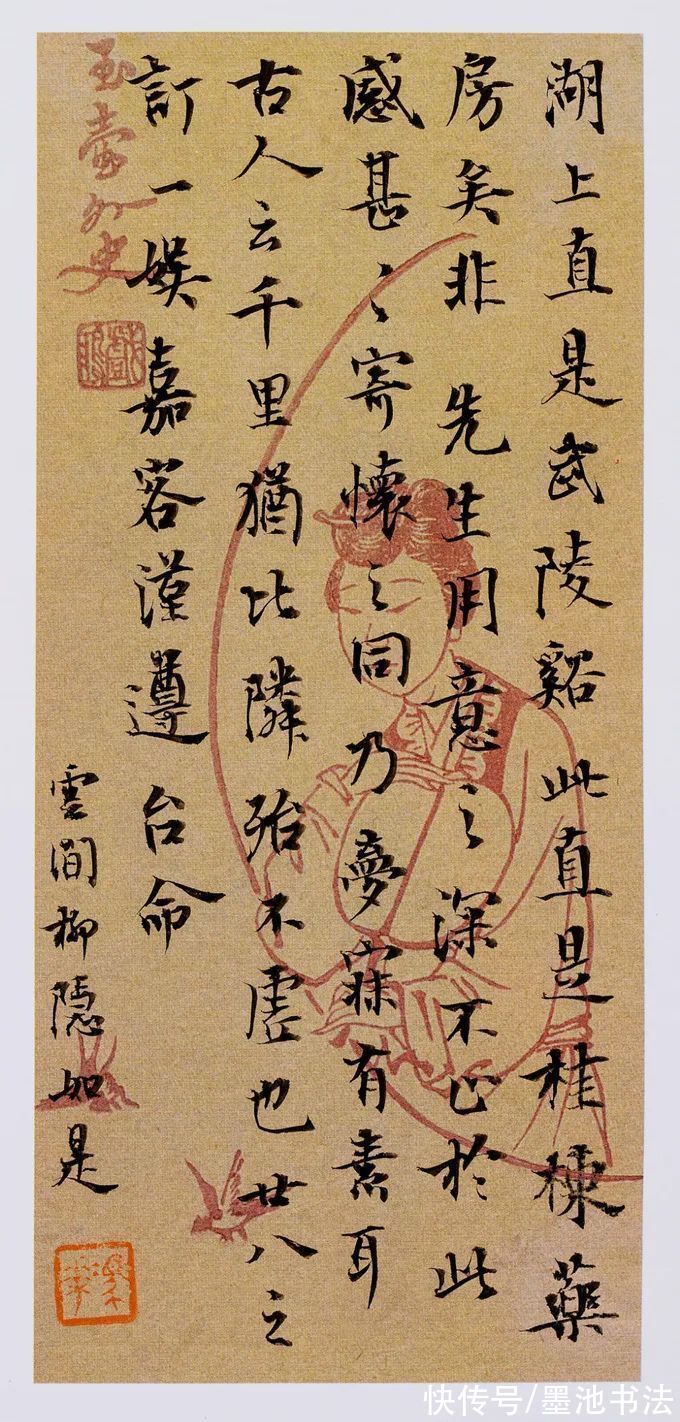 湖上直是武陵谿此直是桂棟藥
房矣非 先生用意之深不止於此
感甚之寄懷之同乃夢寐有素耳
古人云千里猶比隣殆不虛也廿八之
訂一娛嘉客謹遵台命
雲間柳隱如是
玉壺外史
快传号/墨池书法